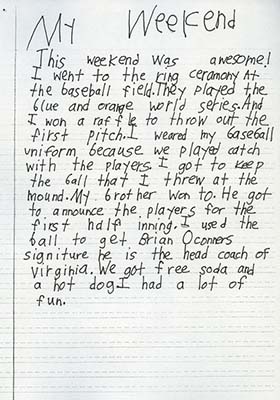 My Weekend
This weekend was awesome!
I went to the ring ceramony at
the baseball field.They played the
blue and orange world series.And
I won a raffle to throw out the
first pitch.I weared my baseball
uniform because we played catch
with the players.I got to keep
the ball that I threw at the
mound.My brother won to.He got
to announce the players for the
first half inning.I used the
ball to get Brian Oconners
signiture he is the head coach of
Virginia.We got free soda and
a hot dog.I had a lot of
fun.